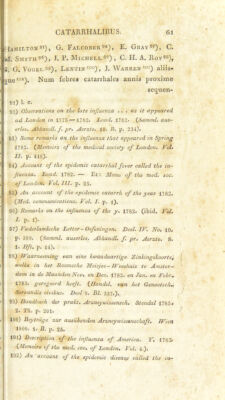 CATARRHALIBUS. 61
HAMILTON 91), G. FALCONER 94), E. GRAY 95), C.
SMETH 96), J. P. MICHELL 97), C. H. A. ROY 98),
G. VOGEL 99), LENTIN 100), J. WARREN 101) aliis-
que 102). Num febres catarrhales annis proxime
sequen-
l. c.
Observations on the late influenza . . . as it appeared
London in 1775—1782. Lond. 1782. (Samml. aus-
erles. Abhandl. f. pr. Aerzte. B. 8. p. 234).
Some remarks on the influenza that appeared in Spring
1782. (Memoirs of the medical society of London. Vol.
II. p. 418).
Account of the epidemic catarrhal fever called the in-
fluenza. Lond. 1782. — EJ. Mem. of the med. soc.
of London. Vol. III. p. 25.
An account of the epidemic catarrh of the year 1782.
(Med. communications. Vol. I. p. 1).
Remarks on the influenza of the y. 1782. (ibid. Vol.
I. p. 1).
Vaderlandsche Letter-Oefeningen. Deel. IV. No. 10.
p. (Samml. auserles. Abhandl. f. pr. Aerzte. B.
Hft. p. 14).
Waarneeming van eene kwaadaartige Zinkingskoorts,
welke in het Roomsche Meisjes-Weeshuis te Amster-
dam in de Maanden Nov. en Dec. 1782. en Jan. en Febr.
1783. geregeerd heeft. (Handel. van het Geneesk.
Deel 2. Bl. 227.).
Handbuch der prakt. Arzneywissensch. Stendal 1785.
2. Th. p. 201.
100) Beyträge zur ausübenden Arzneywissenschaft. Wien
1800. 1. B. p. 28.
101) Description of the influenza of America. Y. 1782.
(Memoirs of the med. soc. of London. Vol. 2.).
102) An account of the epidemic disease called the in-